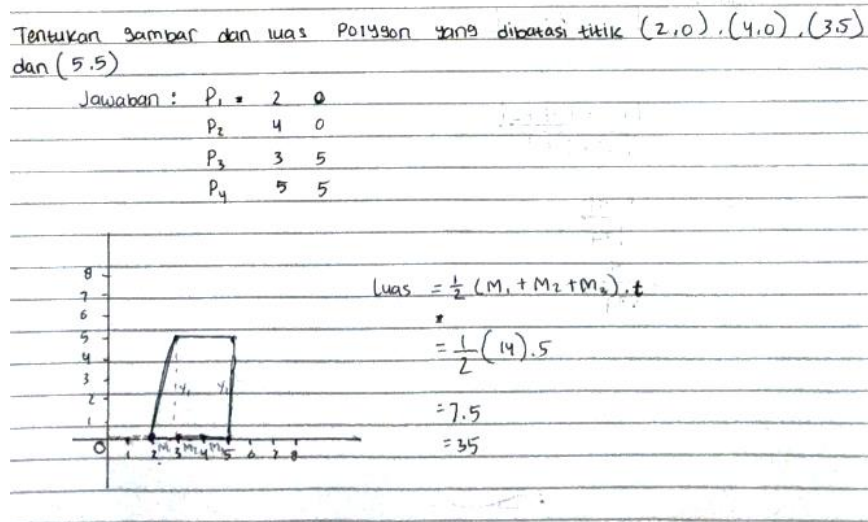 Tentukan gambar dan luas Polygon yang dibatasi titik (2,0), (4,0), (3.5)
dan (5.5)
Jawaban : P₁ = 2 0
P₂ 4 0
P₃ 3 5
P₄ 5 5
8
7
6
5
4
3
2
1
y₁ y₂
0 1 2 3 4 5 6 7 8
M₁ M₂ M₃
Luas = ½ (M₁ + M₂ + M₃) . t
= ½ (14) . 5
= 7.5
= 35